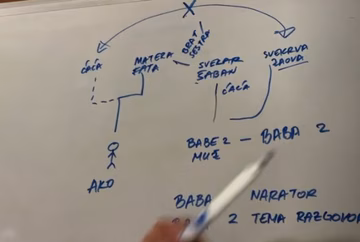 BRAT
SESTRA
ĆAĆA
MATERA
FATA
SVEKAR
ŠABAN
SVEKRVA
ZAOVA
ĆAĆA
BABE 2 — BABA 2
MUŽ
AKO
BABA NARATOR
2 TEMA RAZGOVO